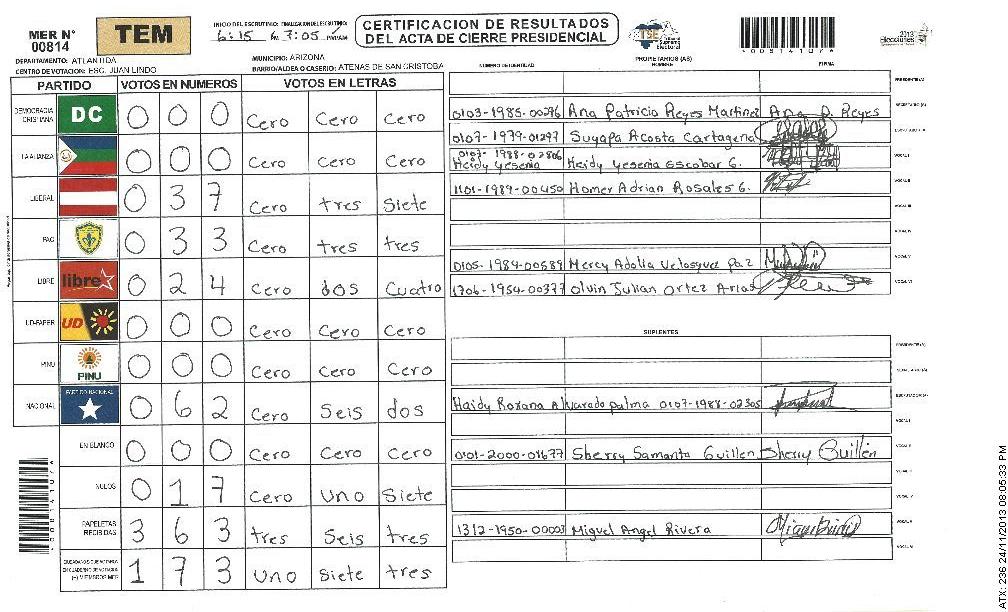 MER N° 00814
TEM
INICIO DEL ESCRUTINIO: FINALIZACION DEL ESCRUTINIO:
6:15 7:05 PM/AM
CERTIFICACION DE RESULTADOS
DEL ACTA DE CIERRE PRESIDENCIAL
TSE Tribunal Supremo Electoral
2013 elecciones
DEPARTAMENTO: ATLANTIDA
MUNICIPIO: ARIZONA
CENTRO DE VOTACION: ESC. JUAN LINDO
BARRIO/ALDEA O CASERIO: ATENAS DE SAN CRISTOBA
NUMERO DE IDENTIDAD
PROPIETARIOS (AS)
NOMBRE
FIRMA
PARTIDO VOTOS EN NUMEROS VOTOS EN LETRAS
DEMOCRACIA CRISTIANA DC 0 0 0 Cero Cero Cero
LA ALIANZA 0 0 0 Cero Cero Cero
LIBERAL 0 3 7 Cero tres Siete
PAC 0 3 3 Cero tres tres
LIBRE libre 0 2 4 Cero dos Cuatro
UD-FAPER UD 0 0 0 Cero Cero Cero
PINU PINU 0 0 0 Cero Cero Cero
NACIONAL PARTIDO NACIONAL 0 6 2 Cero Seis dos
EN BLANCO 0 0 0 Cero Cero Cero
NULOS 0 1 7 Cero uno Siete
PAPELETAS RECIBIDAS 3 6 3 tres Seis tres
(+) MIEMBROS MER 1 7 3 uno Siete tres
PRESIDENTE (A)
0103-1985-00296 Ana Patricia Reyes Martinez Ana P. Reyes SECRETARIO (A)
0107-1979-01297 Suyapa Acosta Cartagena ESCRUTADOR (A)
0107-1988-02806 Heidy Yesenia Heidy Yesenia Escobar G. VOCAL I
1101-1989-00450 Homer Adrian Rosales G. VOCAL II
VOCAL III
VOCAL IV
0105-1984-00589 Mercy Adolia Velasquez Paz VOCAL V
1706-1954-00377 Olvin Julian Ortez Arias VOCAL VI
SUPLENTES
PRESIDENTE (A)
SECRETARIO (A)
Haidy Roxana Alvarado palma 0107-1988-02305 ESCRUTADOR (A)
VOCAL I
0101-2000-01677 Sherry Samanta Guillen Sherry Guillén VOCAL II
VOCAL III
VOCAL IV
1312-1950-00003 Miguel Angel Rivera VOCAL V
VOCAL VI
ATX: 236 24/11/2013 08:05:33 PM